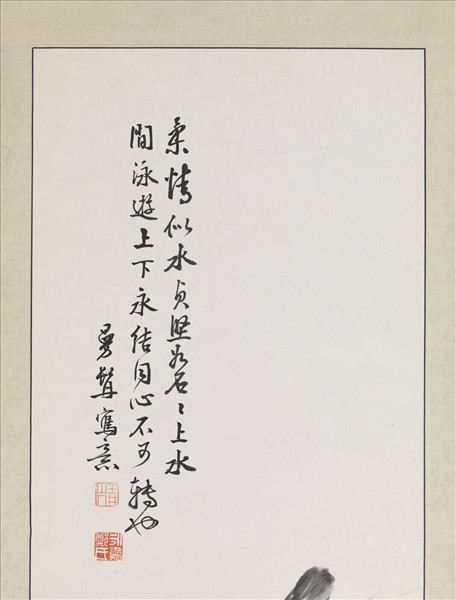 柔情似水貞堅若石〻上水
間泳遊上下永結同心不可轉也
曼髯寫意